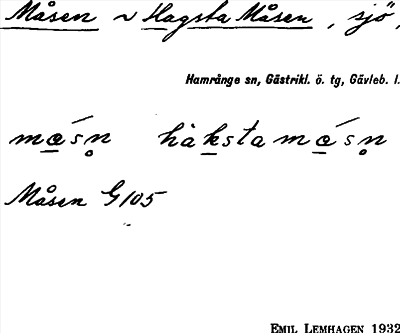 Måsen ~ Hagsta Måsen, sjö,
Hamrånge sn, Gästrikl. ö. tg, Gävleb. l.
mɑ́sn̥ hàkstamɑ́sn̥
Måsen G 105
EMIL LEMHAGEN 1932